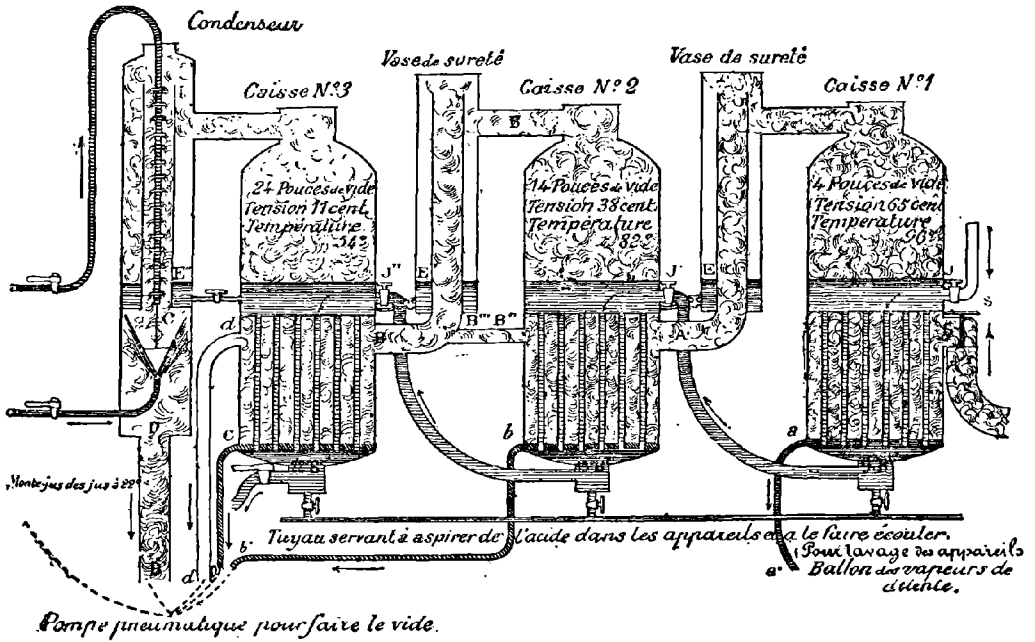 Condenseur
Vase de sureté
Vase de sureté
Caisse Nº3
Caisse Nº2
Caisse Nº1
B
24 Pouces de vide
Tension 11 cent.
Température
54º
14 Pouces de vide
Tension 38 cent.
Température
82º
4 Pouces de vide
Tension 65 cent
Température
E
J"
E
J'
E
J
S
C
d
B
B'" B'"
A
D
c
b
a
Monte-jus des jus à 22º
Tuyau servant à aspirer de l'acide dans les appareils et a le faire écouler.
Pour lavage des appareils
b'
a'
Ballon des vapeurs de
détente.
D
d'
Pompe pneumatique pour faire le vide.